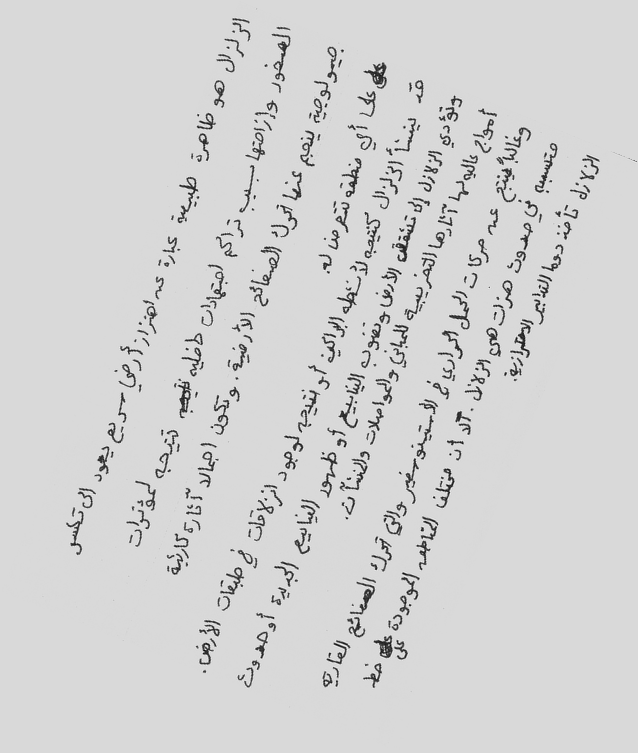 الزلزال هو ظاهرة طبيعية عبارة عن اهتزاز أرضي سريع يعود إلى تكسر
الصخور وإزاحتها بسبب تراكم اجتهادات داخلية نتيجة لمؤثرات
جيولوجية ينجم عنها تحرك الصفائح الأرضية. وتكون اجمالا آثاره كارثية
على أي منطقة تتعرض له.
قد ينشأ الزلزال كنتيجة لأنشطة البراكين أو نتيجة لوجود انزلاقات في طبقات الأرض.
وتؤدي الزلازل إلى تشقق الأرض ونضوب الينابيع أو ظهور الينابيع الجديدة أو حدوث
أمواج عالية لها آثارها التخريبية للمباني والمواصلات والمنشآت.
وغالبا ينتج عن حركات الحمل الحراري في الاستينوسفير والتي تحرك الصفائح القارية
متسببة في حدوث هزات هي الزلازل. الا أن مختلف المناطق الموجودة على خط
الزلازل تأخذ دوما التدابير الاحترازية.